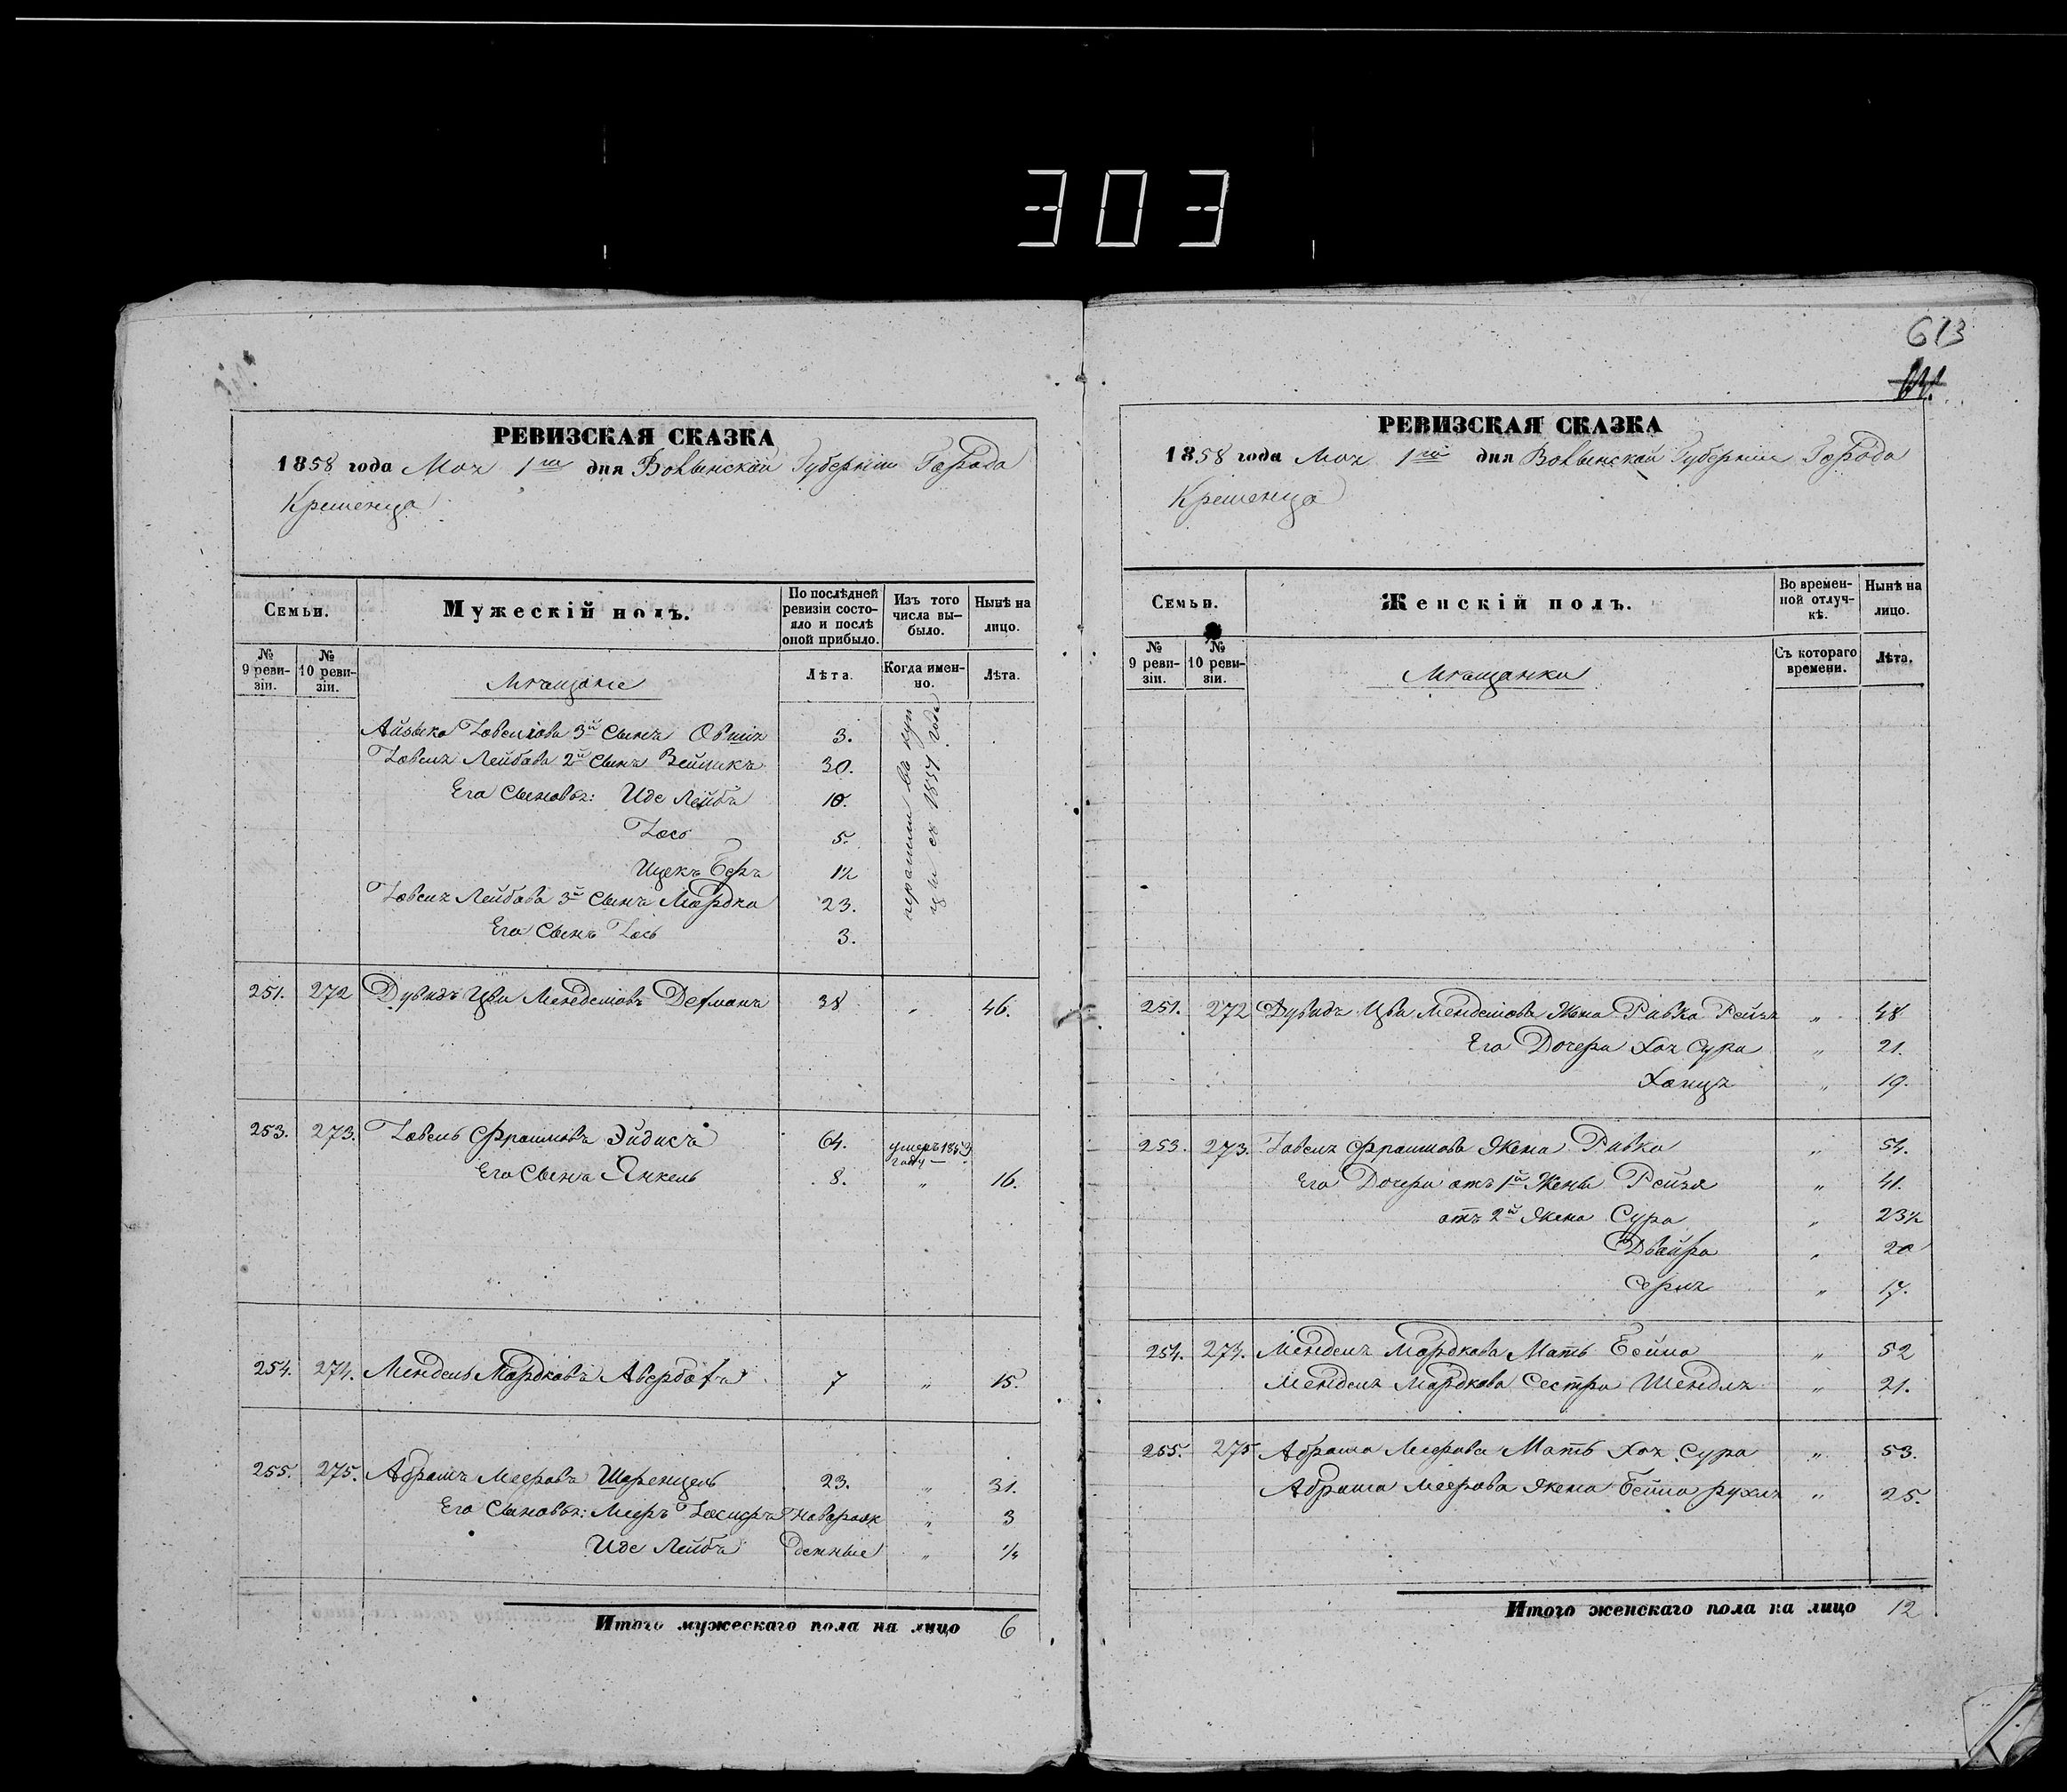 303
613
РЕВИЗСКАЯ СКАЗКА
1858 года Мая 1го дня Волынской Губернии Города
Кременца
Семьи.
Мужескій полъ.
По послѣдней ревизіи состояло и послѣ оной прибыло.
Изъ того числа выбыло.
Нынѣ на лицо.
№ 9 ревизіи.
№ 10 ревизіи.
Мѣщане
Лѣта.
Когда именно.
Лѣта.
Айзыка Іовелiова 3й Сынъ Овшія 3.
Іовеля Лейбова 2й Сынъ Зейликъ 30.
Его Сыновья: Иде Лейба 10.
Іось 5.
Ицекъ Беръ 1½
Іовеля Лейбова 3й Сынъ Мордко 23.
Его Сынъ Іось 3.
перешли въ куп
цы съ 1857 года
251. 272 Дувидъ Цви Менделіовъ 38 „ 46.
253. 273. Іовель Фраимовъ Эйдисъ 64. умеръ 1853 году
Его Сынъ Янкель 8. „ 16.
254. 274. Мендель Мордковъ Авербахъ 7 „ 15.
255. 275. Абрамъ Мееровъ Шпренцель 23. „ 31.
Его Сыновья: Меръ Іосифъ Новорож „ 3
Иде Лейба денные „ ¼
Итого мужескаго пола на лицо 6
РЕВИЗСКАЯ СКАЗКА
1858 года Мая 1го дня Волынской Губернии Города
Кременца
Семьи.
Женскій полъ.
Во временной отлучкѣ.
Нынѣ на лицо.
№ 9 ревизіи.
№ 10 ревизіи.
Мѣщанки
Съ котораго времени.
Лѣта.
251. 272 Дувида Цви Менделіова Жена Ривка Рейзя „ 48
Его Дочери Хая Сура „ 21.
Ханця „ 19.
253. 273. Іовеля Фраимова Жена Ривка „ 54.
Его Дочери отъ 1й Жены Рейзя „ 41.
отъ 2й Жена Сура „ 23½
Двойра „ 20
Серля „ 17.
254. 274. Менделя Мордкова Мать Бейла „ 52
Менделя Мордкова Сестра Шендля „ 21.
255. 275 Абрама Меерова Мать Хая Сура „ 53.
Абрама Меерова Жена Бейла рухля „ 25.
Итого женскаго пола на лицо 12